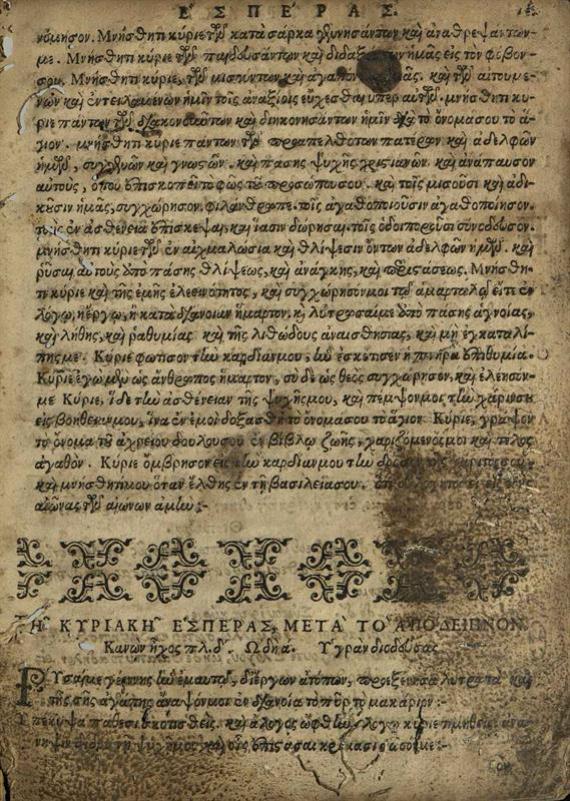 ΕΣΠΕΡΑΣ.
νόμησον. Μνήσθητι κύριε τῶν κατὰ σάρκα γεννησάντων καὶ ἀναθρεψάντων
με. Μνήσθητι κύριε τῶν παιδευσάντων καὶ διδαξάντων ἡμᾶς εἰς τὸν φόβον
σου. Μνήσθητι κύριε, τῶν μισούντων καὶ ἀγαπώντων ἡμᾶς. καὶ τῶν αἰτουμέ-
νων καὶ ἐντειλαμένων ἡμῖν τοῖς ἀναξίοις εὔχεσθαι ὑπὲρ αὐτῶν. μνήσθητι κύ-
ριε πάντων τῶν διακονούντων καὶ διηκονησάντων ἡμῖν διὰ τὸ ὄνομά σου τὸ ἅ-
γιον. μνήσθητι κύριε πάντων τῶν προαπελθόντων πατέρων καὶ ἀδελφῶν
ἡμῶν, συγγενῶν καὶ γνωστῶν. καὶ πάσης ψυχῆς χριστιανῶν. καὶ ἀνάπαυσον
αὐτοὺς, ὅπου ἐπισκοπεῖ τὸ φῶς τοῦ προσώπου σου. καὶ τοῖς μισοῦσι καὶ ἀδι-
κοῦσιν ἡμᾶς, συγχώρησον. φιλάνθρωπε. τοῖς ἀγαθοποιοῦσιν ἀγαθοποίησον.
τοὺς ἐν ἀσθενείᾳ ἐπίσκεψαι, καὶ ἴασιν δώρησαι. τοῖς ὁδοιποροῦσι συνόδευσον.
μνήσθητι κύριε τῶν ἐν αἰχμαλωσίᾳ καὶ θλίψεσιν ὄντων ἀδελφῶν ἡμῶν. καὶ
ῥῦσαι αὐτοὺς ἀπὸ πάσης θλίψεως, καὶ ἀνάγκης, καὶ περιστάσεως. Μνήσθη-
τι κύριε καὶ τῆς ἐμῆς ἐλεεινότητος, καὶ συγχώρησόν μοι τῷ ἁμαρτωλῷ, εἴτε ἐν
λόγῳ, ἢ ἔργῳ, ἢ κατὰ διάνοιαν ἥμαρτον. καὶ λύτρωσαί με ἀπὸ πάσης ἀγνοίας,
καὶ λήθης, καὶ ῥαθυμίας καὶ τῆς λιθώδους ἀναισθησίας, καὶ μὴ ἐγκαταλί-
πῃς με. Κύριε φώτισον τὴν καρδίαν μου, ἣν ἐσκότισεν ἡ πονηρὰ ἐπιθυμία.
Κύριε ἐγὼ μὲν ὡς ἄνθρωπος ἥμαρτον, σὺ δὲ ὡς θεὸς συγχώρησον, καὶ ἐλέησόν
με Κύριε, ἴδε τὴν ἀσθένειαν τῆς ψυχῆς μου, καὶ πέμψον μοι τὴν χάριν σου
εἰς βοήθειάν μου, ἵνα ἐν ἐμοὶ δοξασθῇ τὸ ὄνομά σου τὸ ἅγιον Κύριε, γράψον
τὸ ὄνομα τοῦ ἀχρείου δούλου σου ἐν βίβλῳ ζωῆς, χαριζόμενός μοι καὶ τέλος
ἀγαθόν. Κύριε ὄμβρησον εἰς τὴν καρδίαν μου τὴν δρόσον τῆς χάριτός σου,
καὶ μνήσθητί μου ὅταν ἔλθῃς ἐν τῇ βασιλείᾳ σου. εἰς τοὺς
αἰῶνας τῶν αἰώνων ἀμήν:-
ΤΗ͂ ΚΥΡΙΑΚΗ͂ ἙΣΠΕΡΑΣ, ΜΕΤΑ ΤΟ ἈΠΟΔΕΙΠΝΟΝ.
Κανὼν ἦχος πλ. δ'. Ὠδὴ ά. Ὑγρὰν διοδεύσας
ΡΥσαί με γεέννης ἣν ἐμαυτῷ, δι' ἔργων ἀτόπων, προεξένησα λυτρωτὰ καὶ
τῆς σῆς ἀγάπης ἄναψόν μοι ἐν διανοίᾳ τὸ πῦρ τὸ μακάριον:
Ὑπέκυψα πάθεσι σκοτισθεὶς. καὶ ἄλογος ὤφθην, λόγῳ κύριε τιμηθεὶς